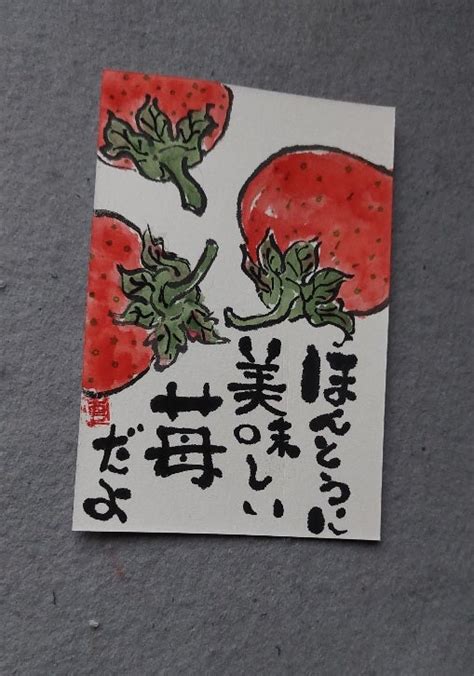 ほんとうに
美味しい
苺
だよ